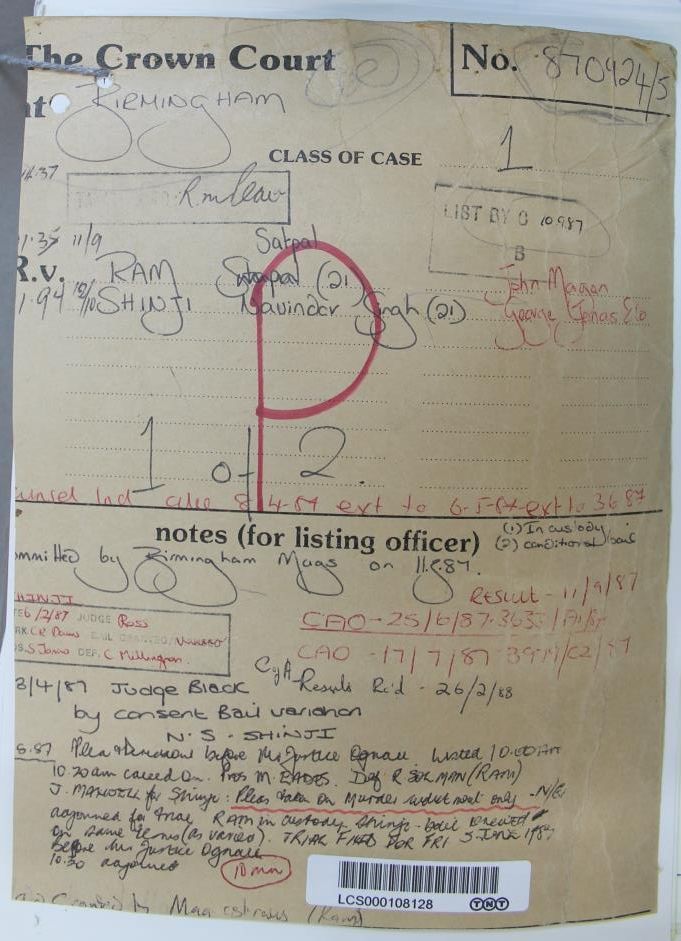 The Crown Court No. 870924/5
at BIRMINGHAM
CLASS OF CASE 1
R.M Craw
LIST BY C 10.9.87
B
11.35 11/9
Satpal
R.v. RAM Satpal (21)
SHINJI Navinder Singh (21)
John Magan
George Jonas & Co
P
1 of 2.
Counsel Ind 8/4-87 ext to 6-5-87 ext to 3 6 87
notes (for listing officer)
(1) In custody
(2) conditional bail
Committed by Birmingham Mags on 11.2.87.
RESULT - 11/9/87
SHINJI
26/2/87 JUDGE Ross
CAO - 25/6/87
BAIL GRANTED/VARIED
DEF. C Millington
CAO - 17/7/87
CofA Results Rc'd - 26/2/88
3/4/87 Judge Black
by consent Bail variation
N.S. SHINJI
5.87 Plea & Directions before Mr Justice Ognall. Listed 10.00 Am
10.20am called on. Pros M. EADES. Def R (RAM)
J. for Shinji: Pleas taken on Murder indictment only - N/G
adjourned for trial RAM in custody Shinji - bail renewed
on same terms (as varied). TRIAL FIXED FOR FRI 5 JUNE 1987
before Mr Justice Ognall
10.30 adjourned 10 min
LCS000108128 TNT
Granted by Magistrates (Ram)